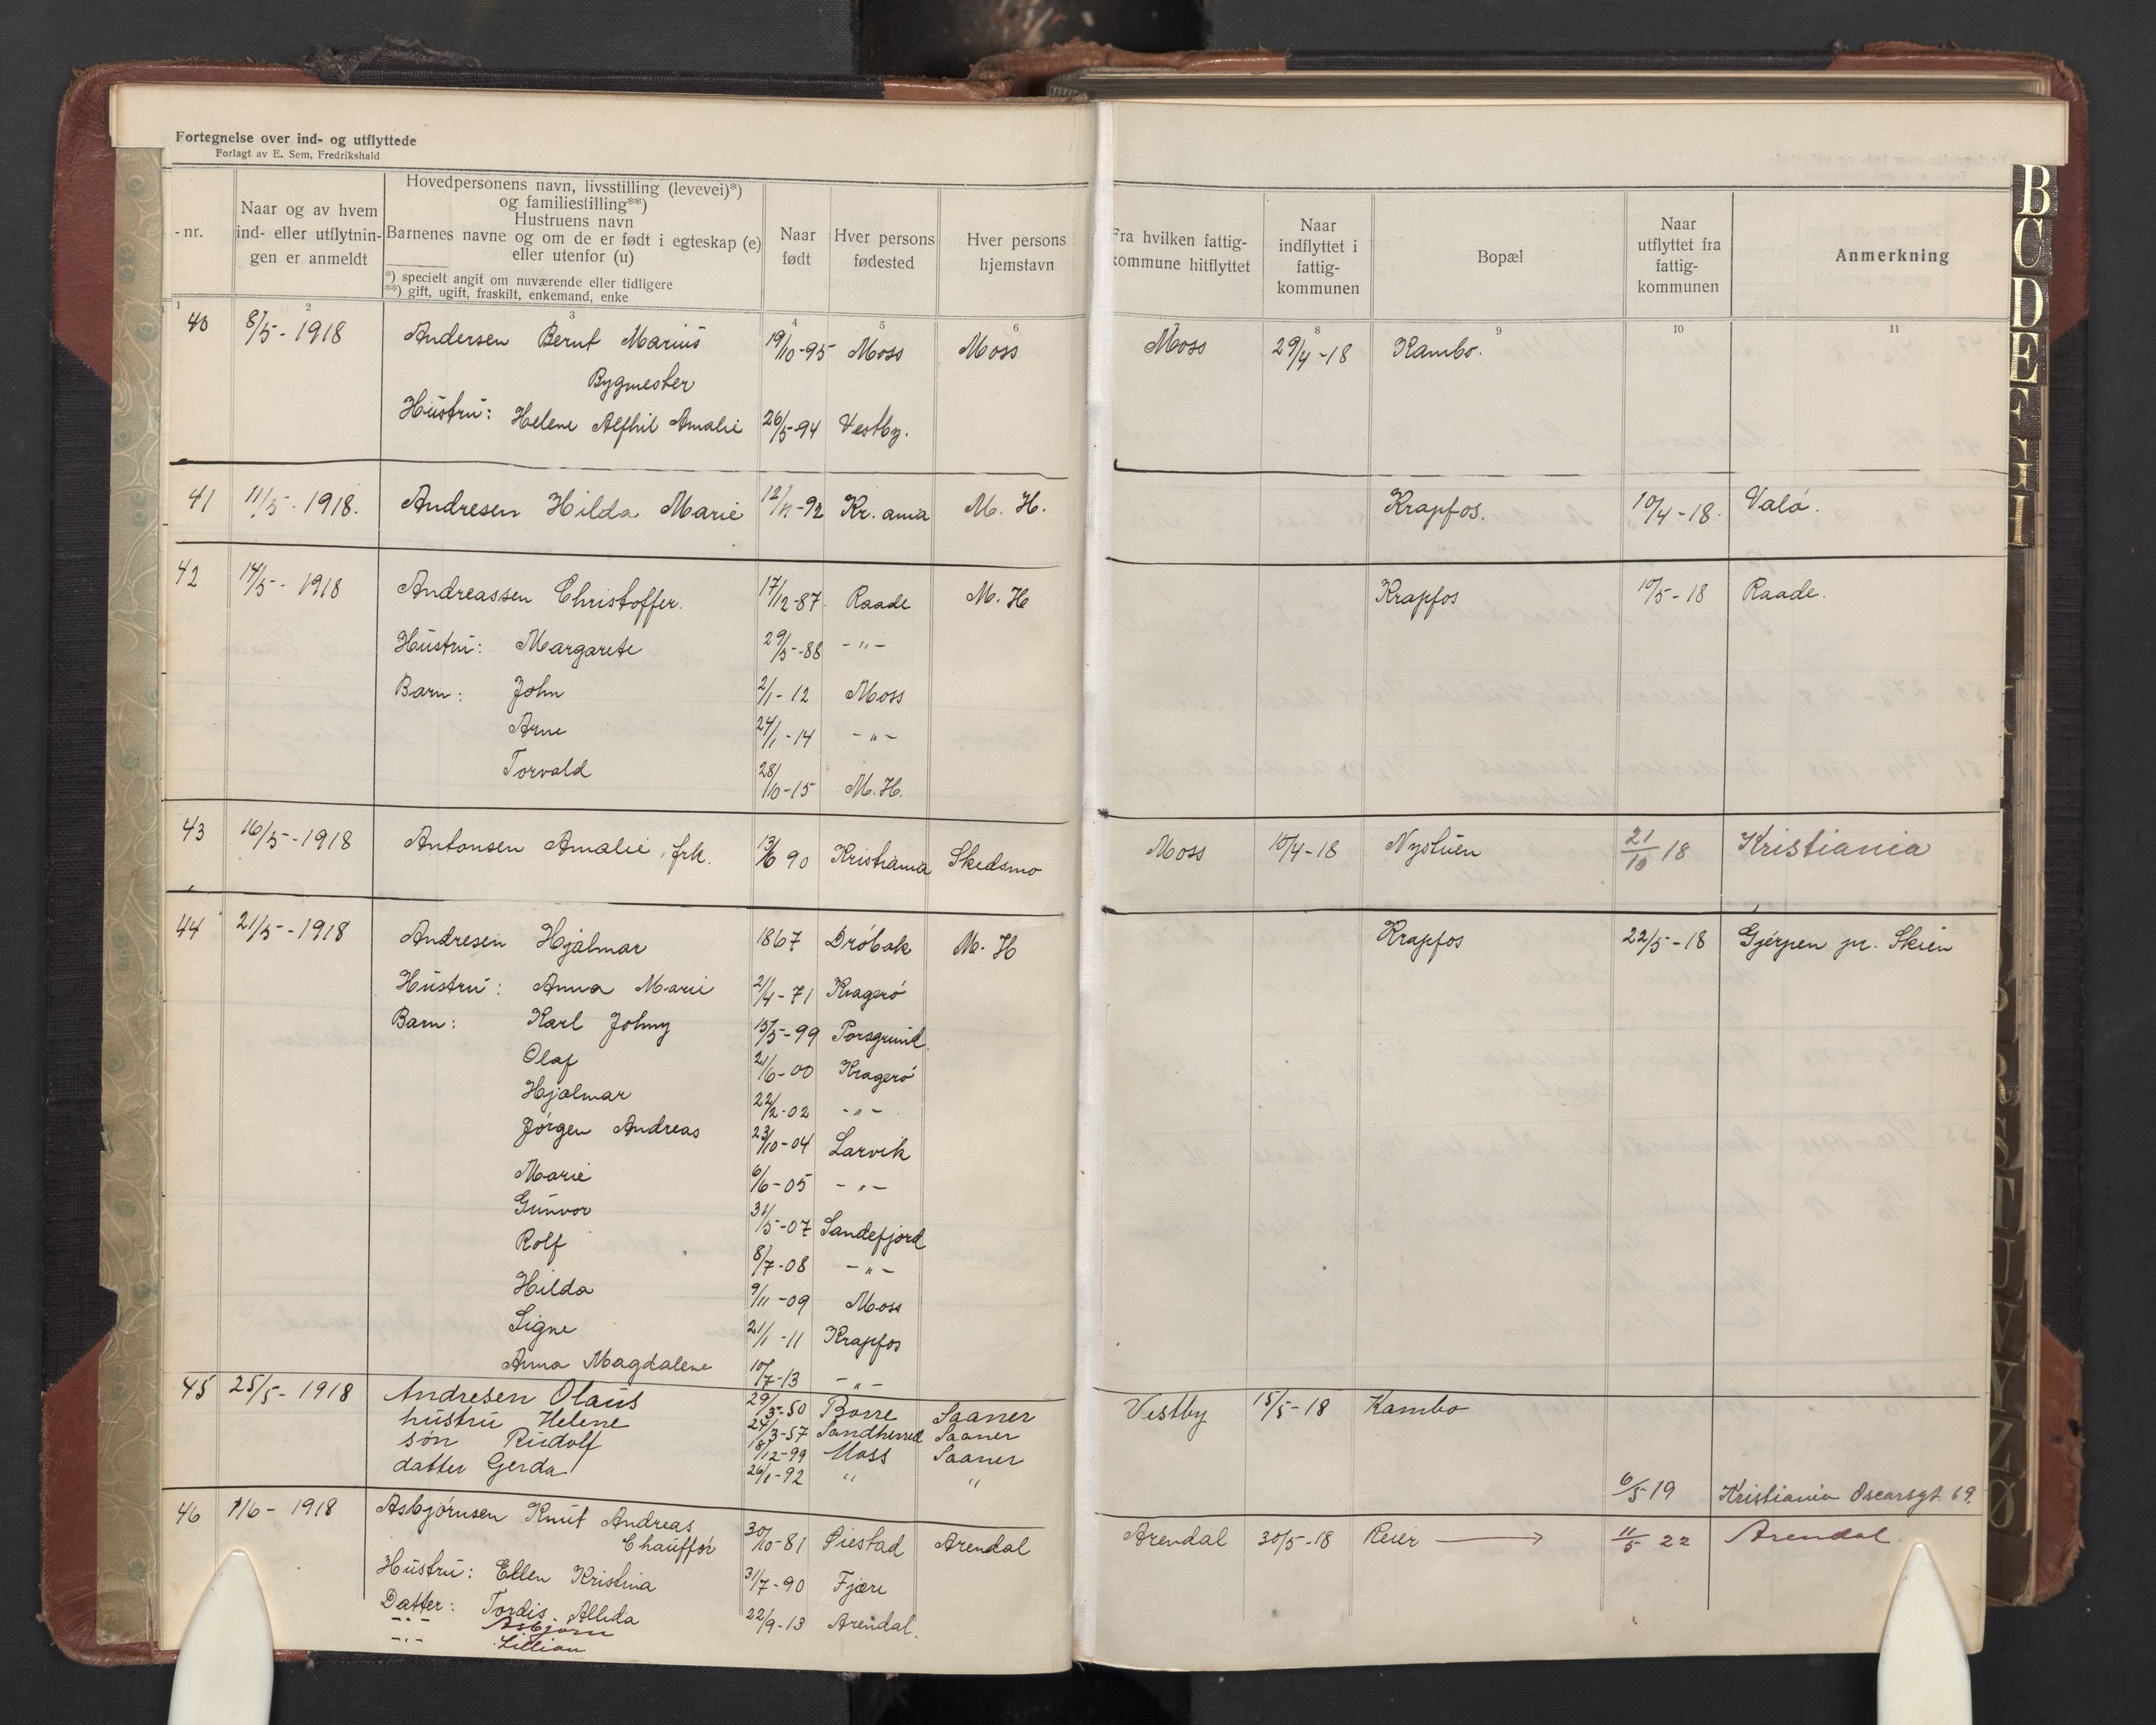 Fortegnelse over ind- og utflyttede
Forlagt av E. Sem, Fredrikshald
-nr.
Naar og av hvem
ind- eller utflytnin-
gen er anmeldt
Hovedpersonens navn, livsstilling (levevei)*)
og familiestilling**)
Hustruens navn
Barnenes navne og om de er født i egteskap (e)
eller utenfor (u)
*) specielt angit om nuværende eller tidligere
**) gift, ugift, fraskilt, enkemand, enke
Naar
født
Hver persons
fødested
Hver persons
hjemstavn
Fra hvilken fattig-
kommune hitflyttet
Naar
indflyttet i
fattig-
kommunen
Bopæl
Naar
utflyttet fra
fattig-
kommunen
Anmerkning
1 2 3 4 5 6 7 8 9 10 11
40 8/5 - 1918 Andersen Bernt Marius 19/10-95 Moss Moss Moss 29/4-18 Kambo.
Bygmester
Hustru: Helene Alfhil Amalie 26/5-94 Vestby.
41 11/5 - 1918. Andresen Hilda Marie 12/11-92 Kr.ania M. H. Krapfos. 10/4-18. Valø.
42 14/5 - 1918 Andreassen Christoffer. 17/12-87. Raade M. H Krapfos 10/5-18 Raade.
Hustru: Margarete 29/5-88 -"-
Barn: John 2/1-12 Moss
Arne 24/1-14 -"-
Torvald 28/10-15 M. H.
43 16/5 - 1918 Antonsen Amalie, frk. 13/6 90 Kristiania Skedsmo Moss 15/4-18 Nystuen 21/10 18 Kristiania
44 21/5 - 1918 Andresen Hjalmar 1867 Drøbak M. H Krapfos 22/5-18 Gjerpen pr. Skien
Hustru: Anna Marie 21/4-71 Kragerø
Barn: Karl Johny 15/5-99 Porsgrund.
Olaf 21/6-00 Kragerø
Hjalmar 22/2-02 -"-
Jørgen Andreas 23/10-04 Larvik
Marie 6/6-05 -"-
Gunvor 31/5-07 Sandefjord
Rolf 8/7-08 -"-
Hilda 9/11-09 Moss
Signe 21/1-11 Krapfos
Anna Magdalene 10/7-13 -"-
45 25/5 - 1918 Andresen Olaus 29/3-50 Borre Saaner Vestby 15/5-18 Kambo
hustru Helene 24/3-57 Sandherred Saaner
søn Rudolf 18/12-99 Moss Saaner
datter Gerda 26/1-92 " "
6/5 19 Kristiania Oscarsgt. 69.
46 1/6 - 1918 Asbjørnsen Knut Andreas 30/10-81 Øiestad Arendal Arendal 30/5-18 Reier → 11/5 22 Arendal
Chauffør
Hustru: Ellen Kristina 31/7-90 Fjære
Datter: Tordis Allida 22/9-13 Arendal.
-"- Asbjørn
-"- Lillian
B
C
D
E
F
G
I
R
S
T
U
V
Y
Z
Ø